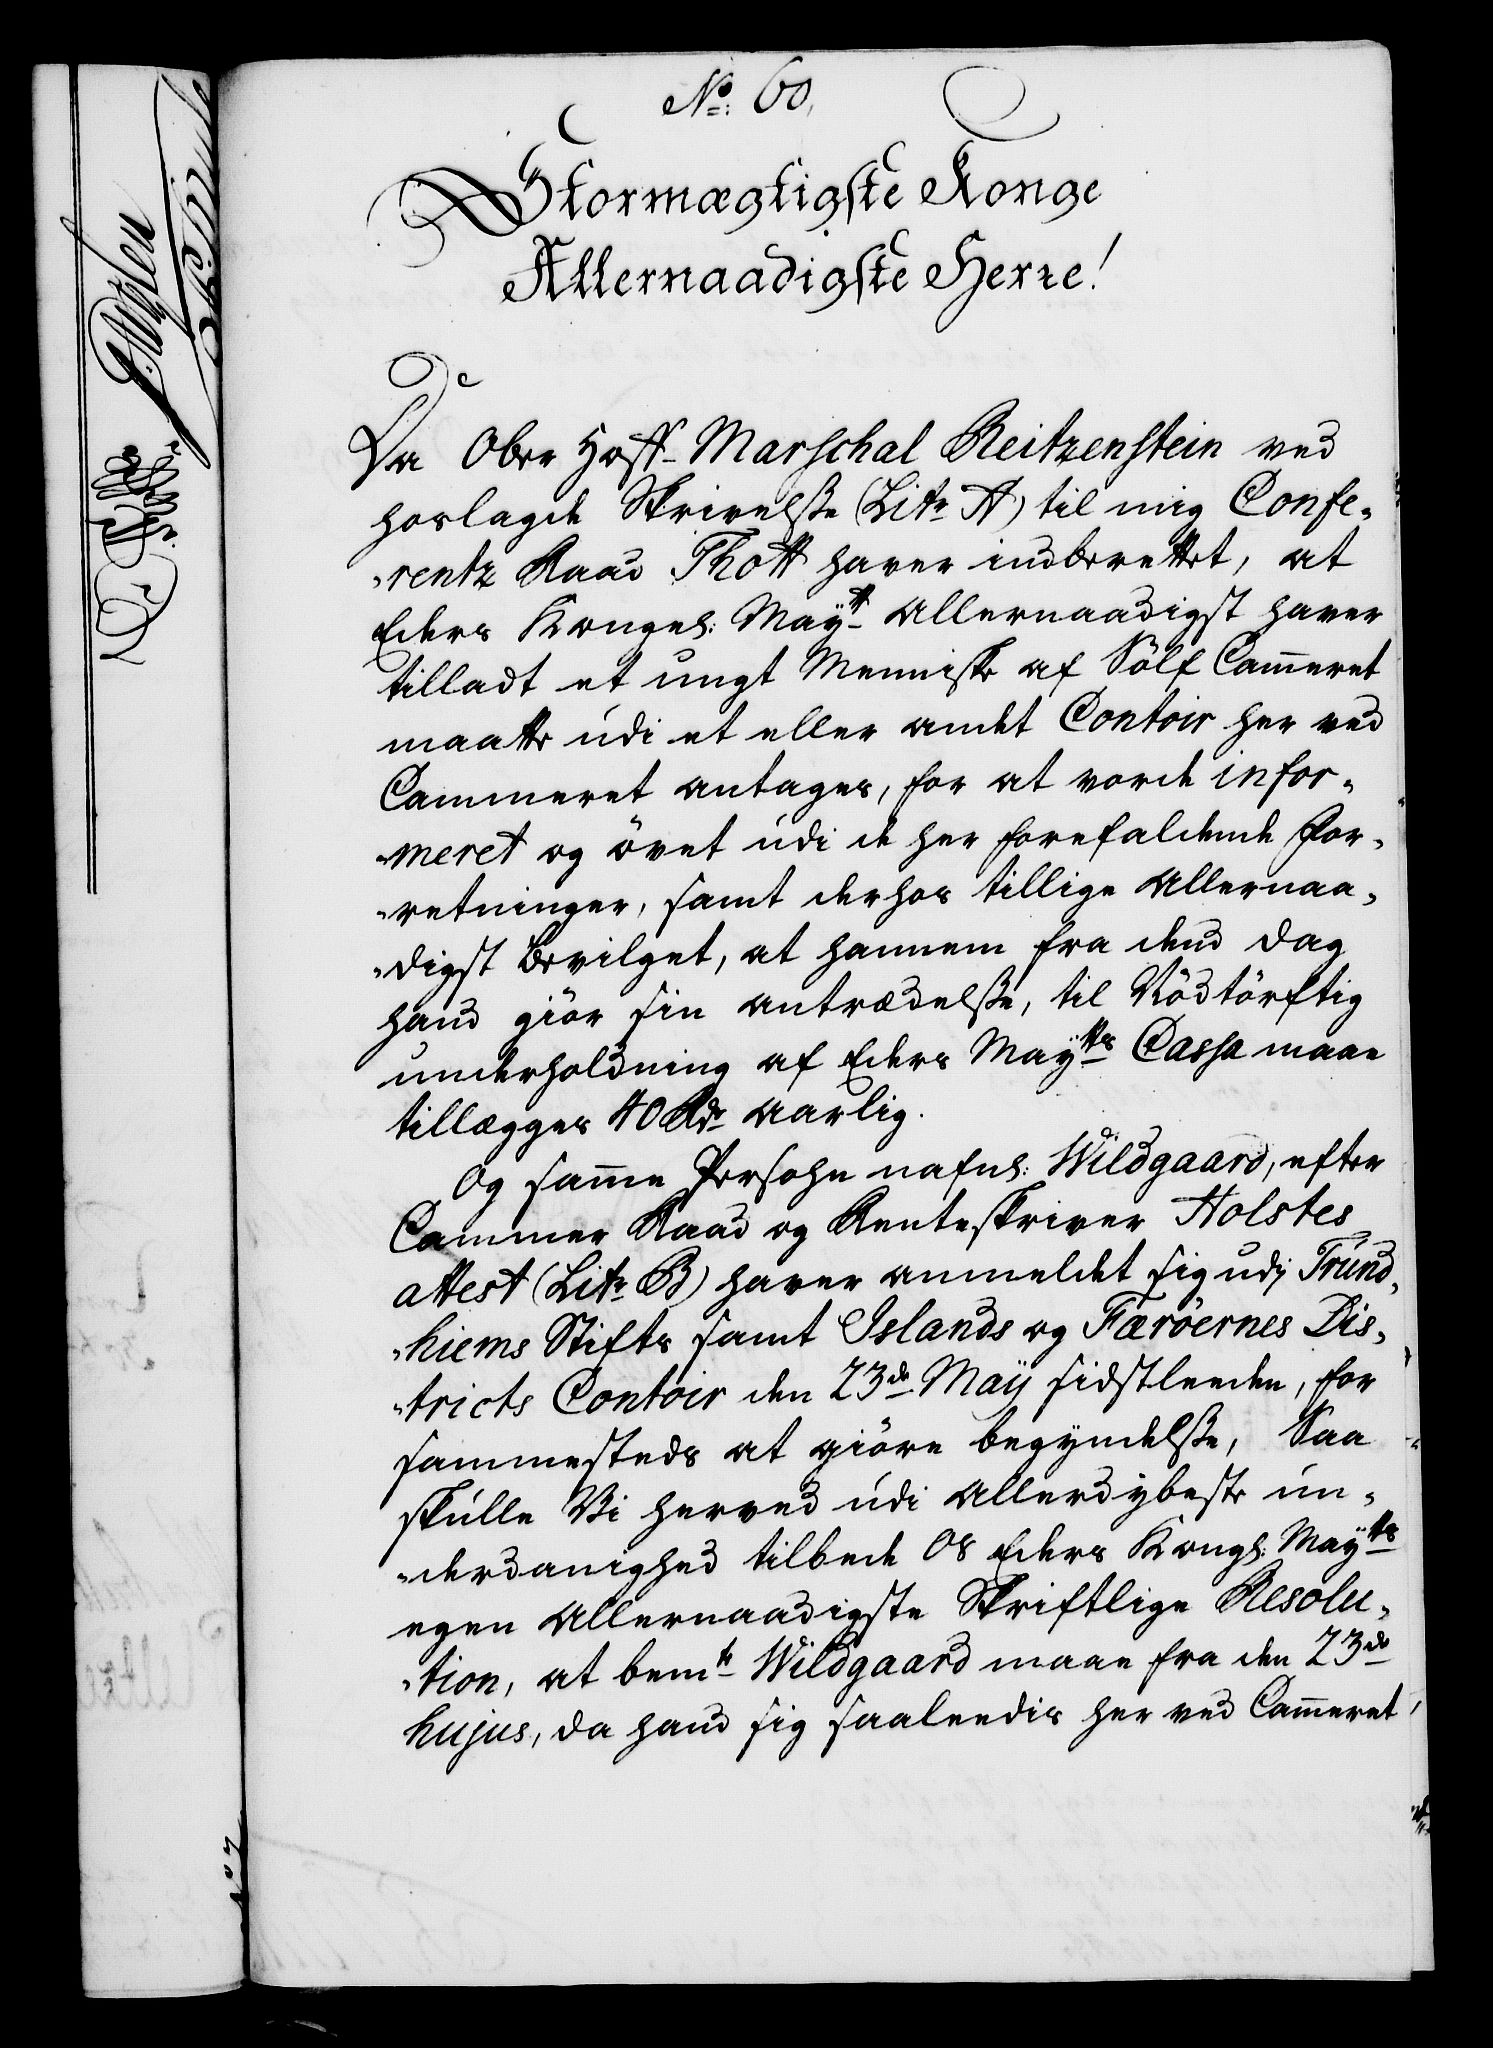 No: 60,
Stormægtigste Konge
Allernaadigste Herre!
Da Ober Hoff-Marschal Reitzenstein ved
hoslagde Skrivelsse (Litr A) til mig Confe-
-rentz Raad Thott haver indberettet, at
Eders Kongel: Maytt Allernaadigst haver
tilladt et ungt Menniske af Sölf Cam̄eret
maatte udi et eller andet Contoir her ved
Cammeret antages, for at vorde infor-
-meret og övet udi de her forefaldende For-
-retninger, samt derhos tillige Allernaa-
-digst bevilget, at hannem fra dend Dag
hand giör sin antrædelsse, til Nödtörftig
underholdning af Eders Maytts Cassa maae
tillægges 40 Rdr Aarlig.
Og sam̄e Persohn nafnl: Wildgaard, efter
Cammer Raad og Renteskriver Holstes
attest (Litr B) haver anmeldet sig udj Trund-
-hiems Stifts samt Islands og Færöernes Dis-
-tricts Contoir den 23de Maÿ sidstleeden, for
sammesteds at giöre begyndelsse, Saa
skulle Vi herved udi Allerdybeste un-
-derdanighed tilbede Os Eders Kongl: Maytts
egen Allernaadigste Skriftlige Resolu-
-tion, at bemte Wildgaard maae fra den 23de
hujus, da hand sig saaleedis her ved Cam̄eret